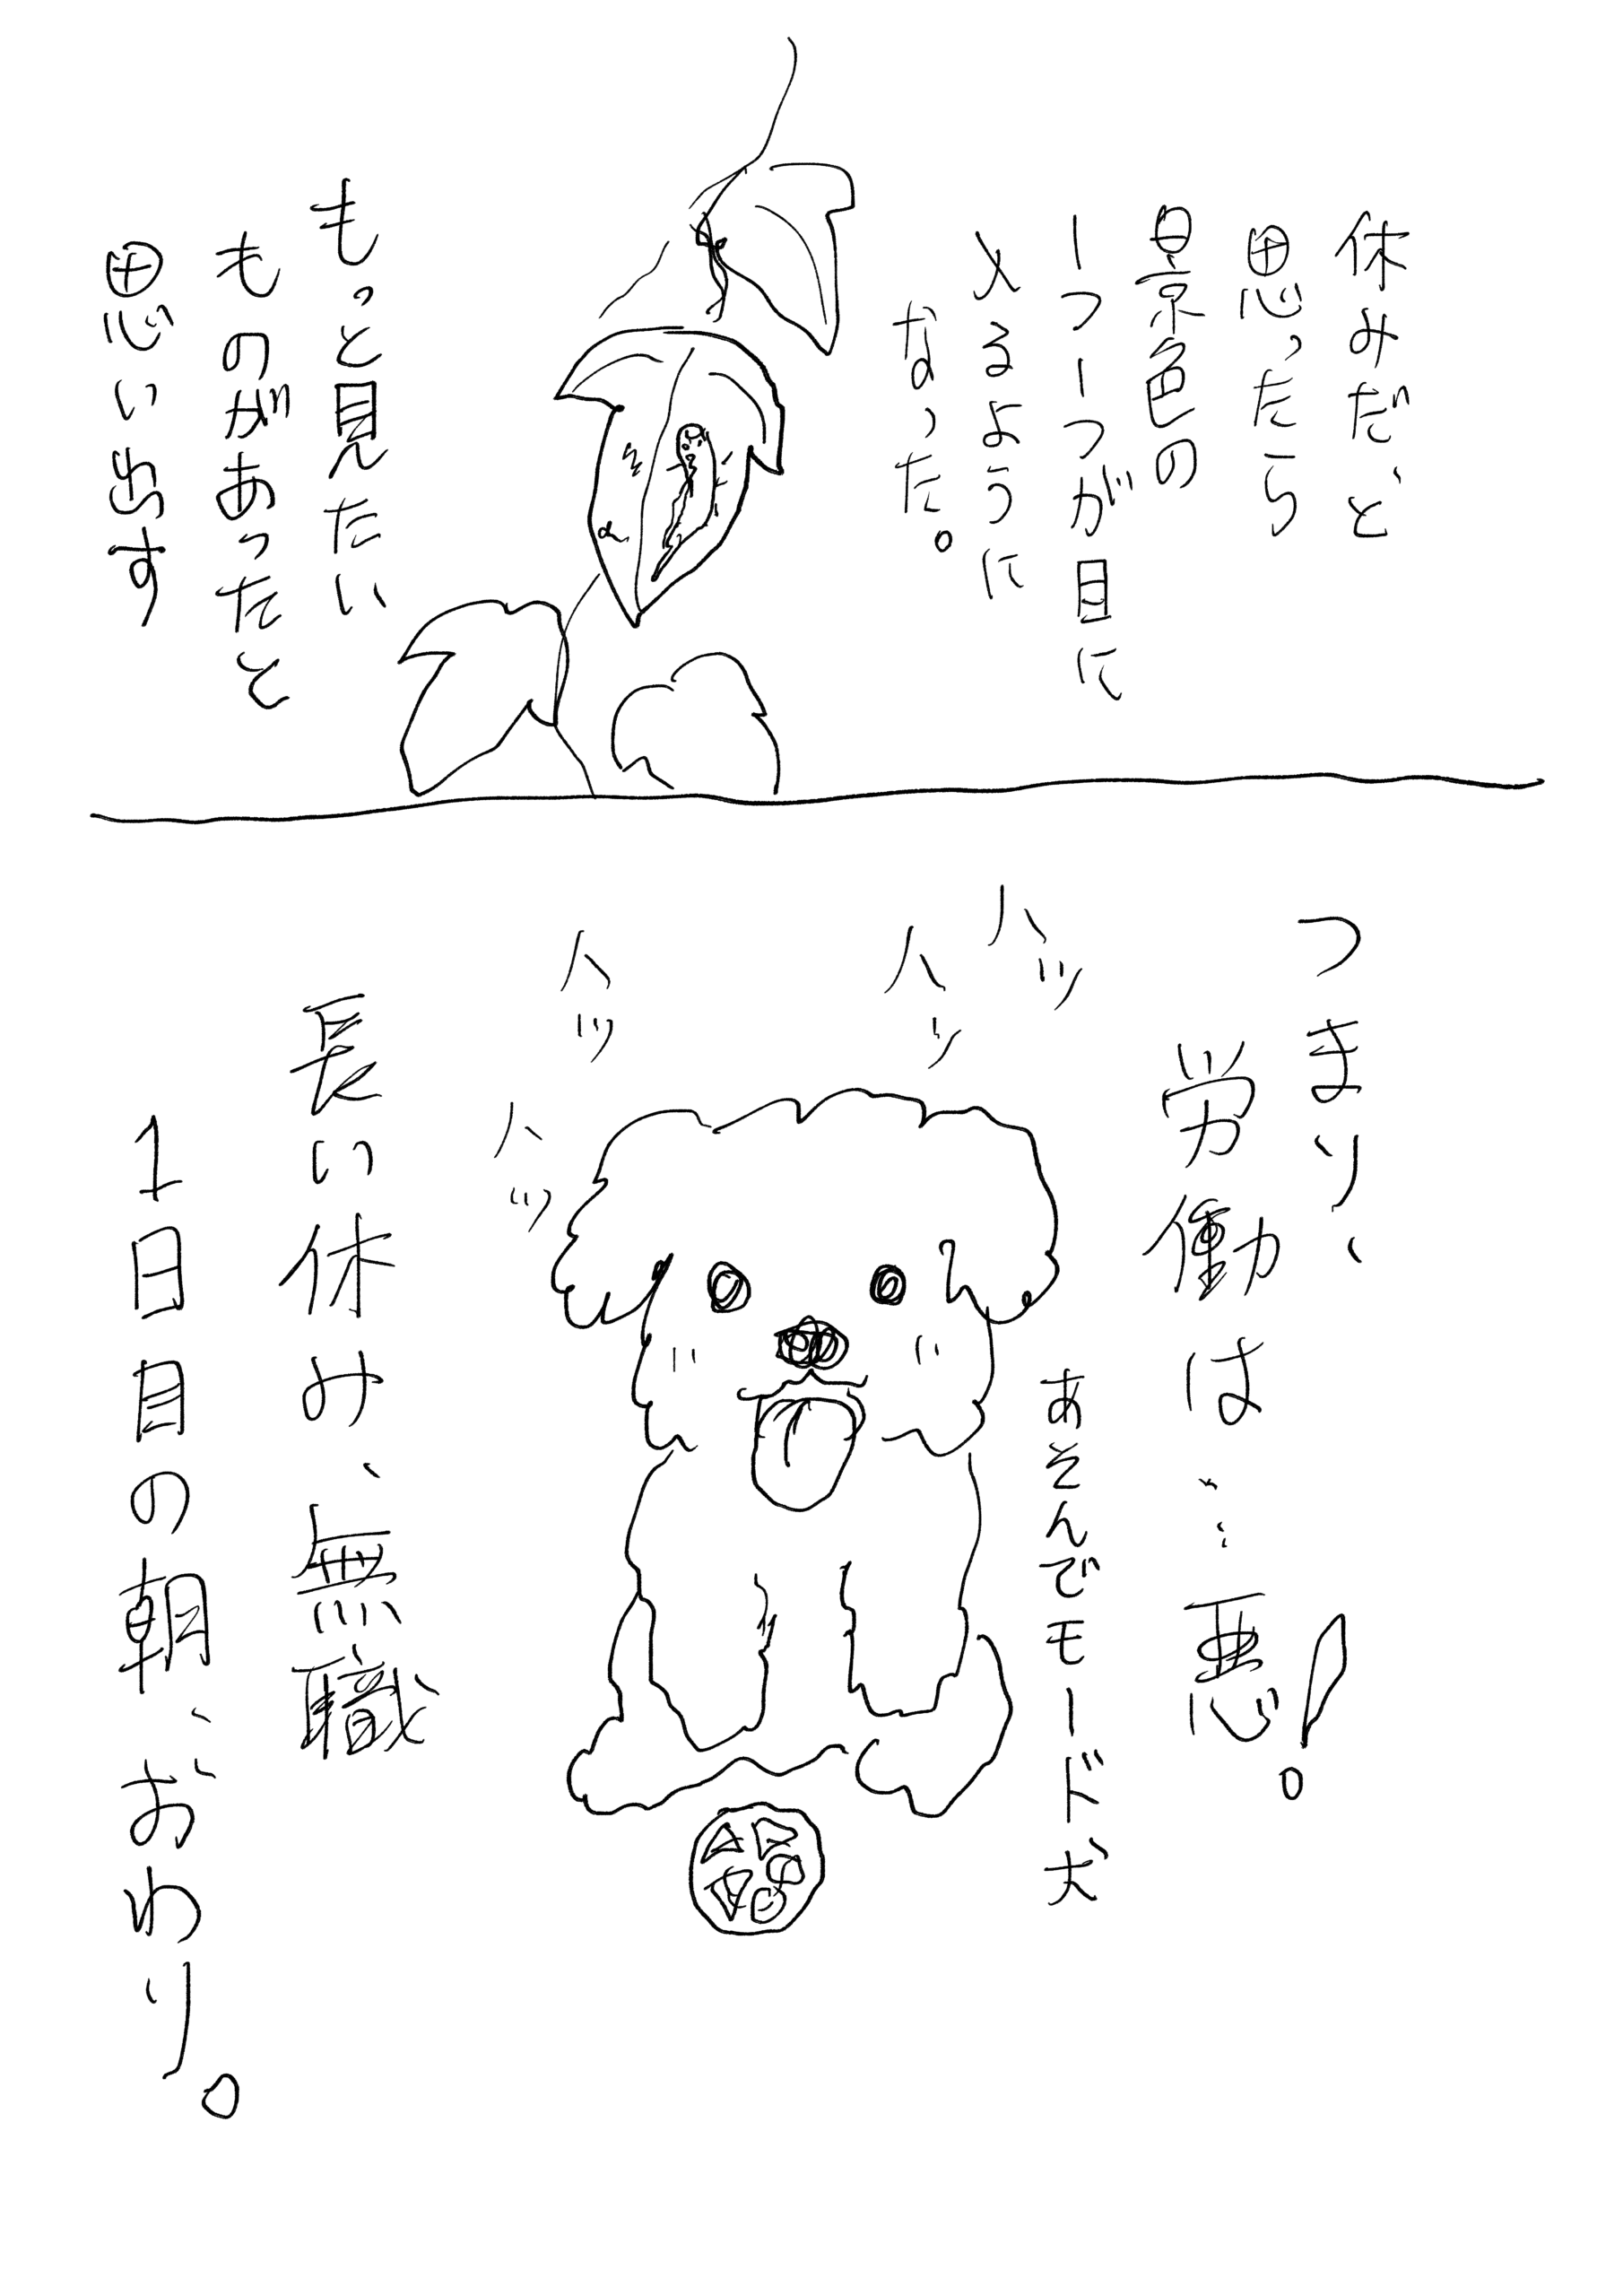 休みだ、と
思ったら
景色の
一つ一つが目に
入るように
なった。
もっと見たい
ものがあったと
思い出す
つまり、
労働は……悪!。
ハッ
ハッ
ハッ
ハッ
あそんでモード犬
長い休み、無職
1日目の朝、おわり。